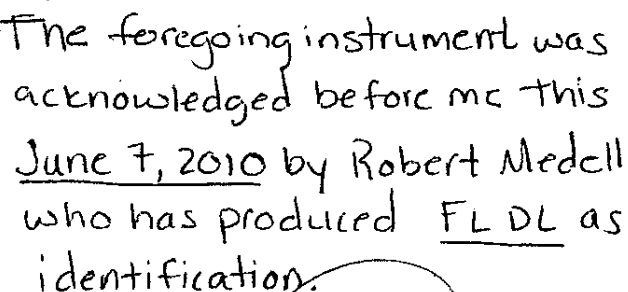 The foregoing instrument was
acknowledged before me this
June 7, 2010 by Robert Medell
who has produced FL DL as
identification.